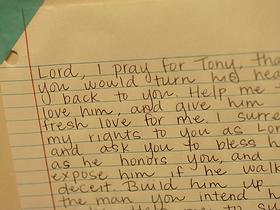 Lord, I pray for Tony, tha
you would turn his hea
y back to you. Help me t
love him, and give him
fresh love for me. I surre
my rights to you as Lor
and ask you to bless h
as he honors you, and
expose him if he walk
deceit. Build him up
the man you intend h